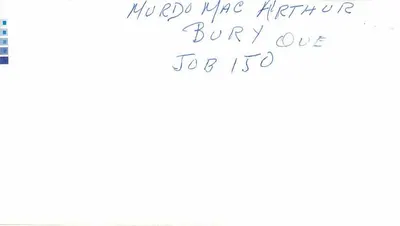 MURDO MAC ARTHUR
BURY QUE
JOB 150